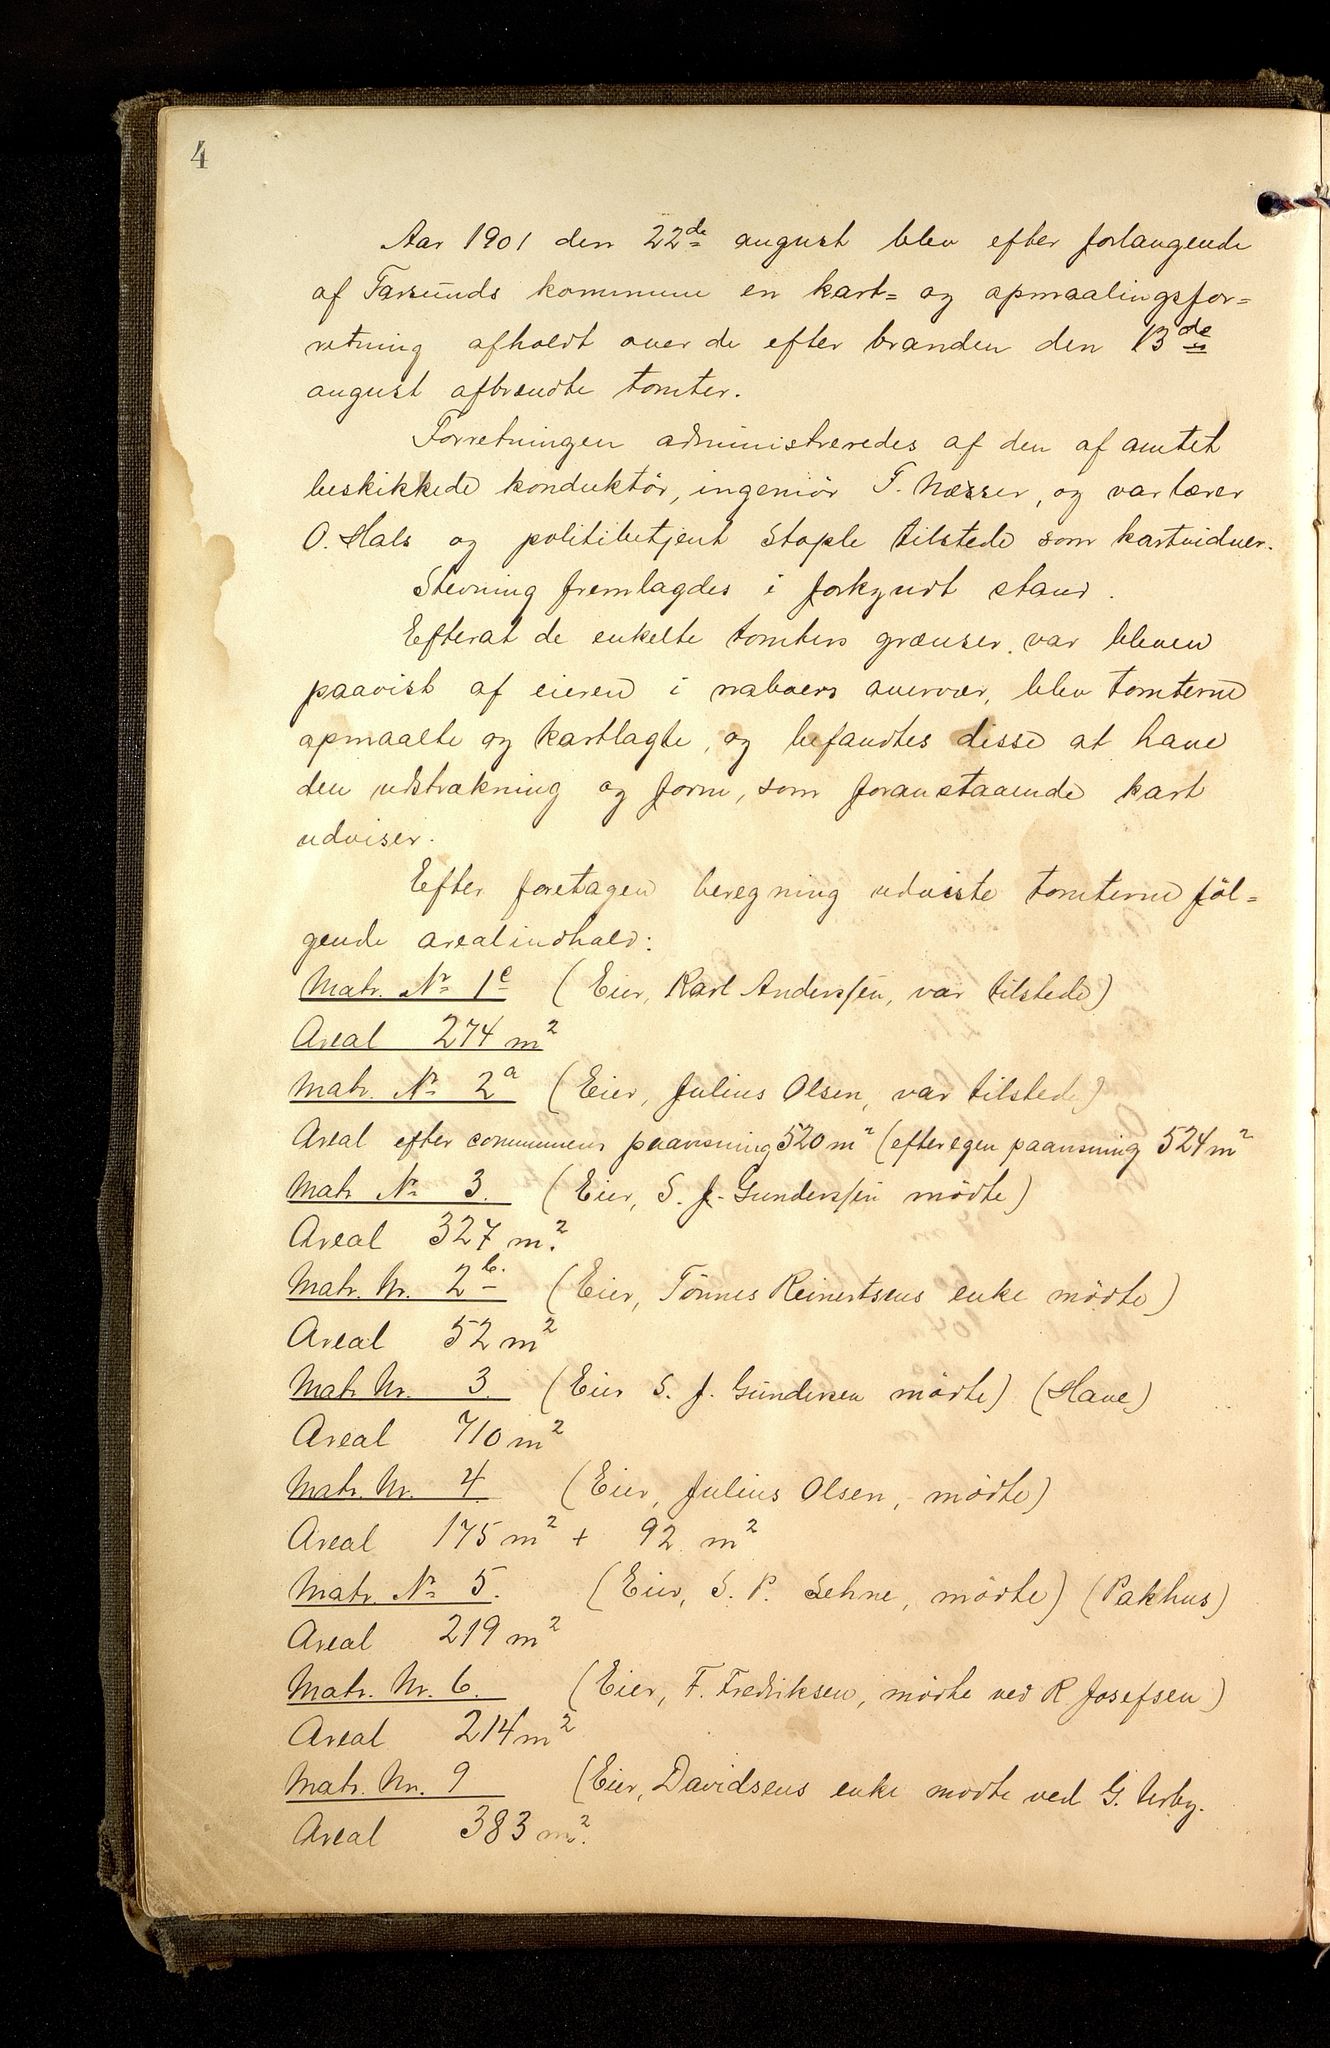 4
Aar 1901 den 22de august blev efter forlangende
af Farsunds kommune en kart= og opmaalingsfor=
retning afholdt over de efter branden den 13de
august afbrændte tomter.
Forretningen administreredes af den af amtet
beskikkede konduktør, ingeniør F. Næsser, og var lærer
O. Hals og politibetjent Stople tilstede som kartvidner.
Stevning fremlagdes i forkyndt stand.
Efterat de enkelte tomters grænser var bleven
paavist af eieren i naboers overvær, blev tomterne
opmaalte og kartlagte, og befandtes disse at have
den udstrækning og form, som foranstaaende kart
udviser.
Efter foretagen beregning udviste tomterne føl=
gende arealindhold:
Matr. No 1c (Eier, Karl Anderssen, var tilstede)
Areal 274 m²
Matr. No 2a (Eier, Julius Olsen, var tilstede)
Areal efter communens paavisning 520 m² (efter egen paavisning 524 m²
Matr No 3. (Eier, S. J. Gunderssen mødte)
Areal 327 m.²
Matr. Nr. 2b. (Eier, Tønnes Reinertsens enke mødte)
Areal 52 m²
Matr. Nr. 3. (Eier S. J. Gundersen mødte) (Have)
Areal 710 m²
Matr. Nr. 4 (Eier, Julius Olsen, mødte)
Areal 175 m² + 92 m²
Matr. No 5. (Eier, S. P. Sehne, mødte) (Pakhus)
Areal 219 m²
Matr. Nr. 6. (Eier, F. Fredriksen, mødte ved R. Josefsen)
Areal 214 m²
Matr. Nr. 9 (Eier, Davidsens enke mødte ved G.
Areal 383 m.²